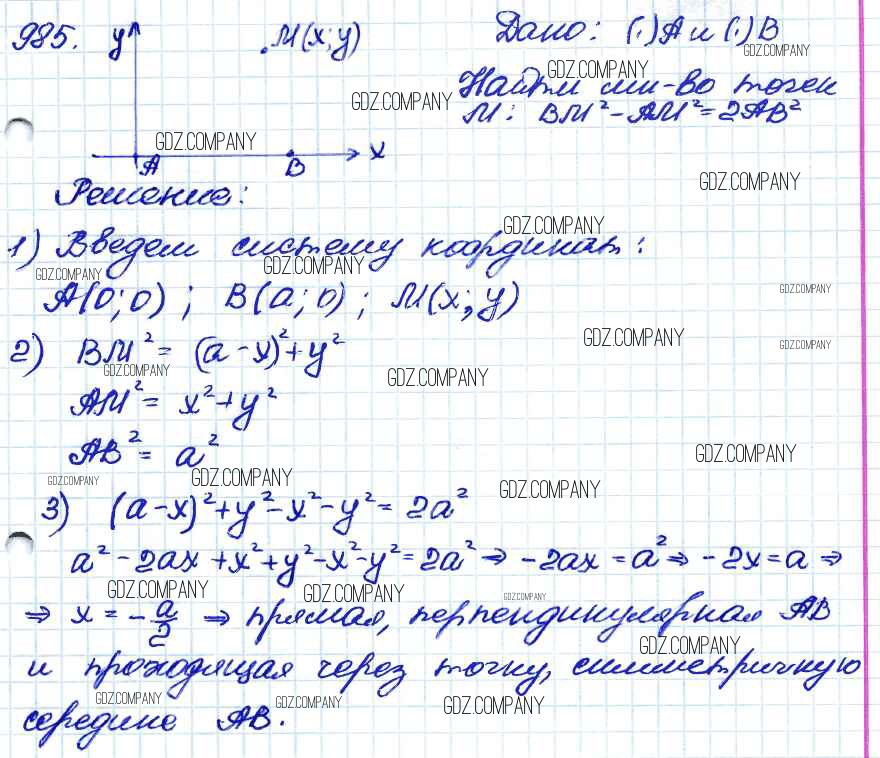 985. y M(x; y) Дано: (·) A и (·) B
GDZ.COMPANY
Найти мн-во точек
GDZ.COMPANY
GDZ.COMPANY
M: BM² - AM² = 2AB²
GDZ.COMPANY
A B x
Решение:
GDZ.COMPANY
GDZ.COMPANY
1) Введем систему координат:
GDZ.COMPANY GDZ.COMPANY
A(0; 0); B(a; 0); M(x; y)
GDZ.COMPANY
2) BM² = (a - x)² + y²
GDZ.COMPANY GDZ.COMPANY
GDZ.COMPANY GDZ.COMPANY
AM² = x² + y²
AB² = a²
GDZ.COMPANY
GDZ.COMPANY GDZ.COMPANY GDZ.COMPANY
3) (a - x)² + y² - x² - y² = 2a²
a² - 2ax + x² + y² - x² - y² = 2a² ⇒ -2ax = a² ⇒ -2x = a ⇒
GDZ.COMPANY GDZ.COMPANY GDZ.COMPANY
⇒ x = -a/2 ⇒ прямая, перпендикулярная AB
GDZ.COMPANY
и проходящая через точку, симметричную
GDZ.COMPANY GDZ.COMPANY GDZ.COMPANY
середине AB.